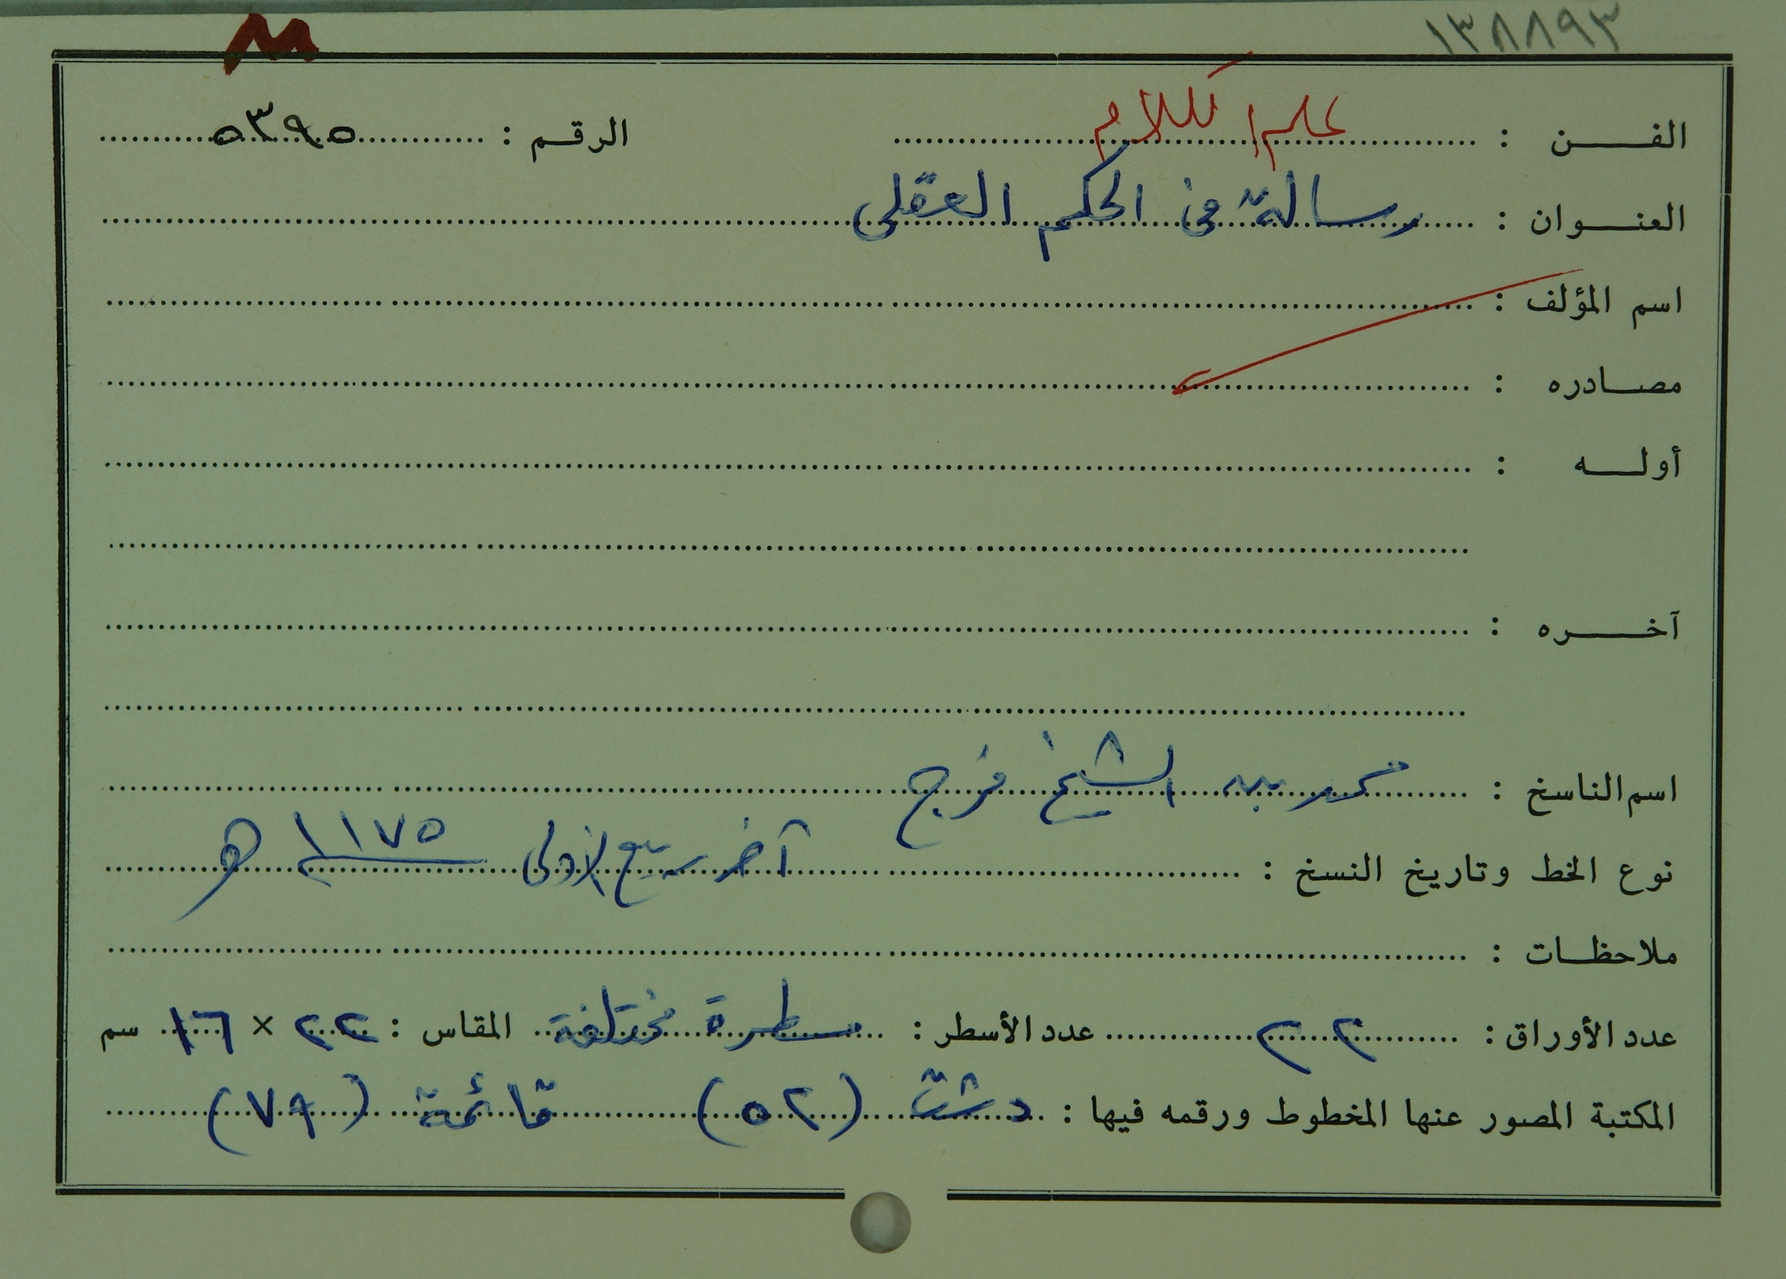 ١٣٨٨٩٣
الفن : علم الكلام الرقم : ٥٣٩٥
العنوان : رسالة فى الحكم العقلى
اسم المؤلف :
مصادره :
أوله :
آخره :
اسم الناسخ : محمد بن الشيخ فرج
نوع الخط وتاريخ النسخ : آخر ربيع الأولى ١١٧٥ هـ
ملاحظات :
عدد الأوراق : عدد الأسطر : مسطرة مختلفة المقاس : ٢٢ × ١٦ سم
المكتبة المصور عنها المخطوط ورقمه فيها : دشت (٥٢) قائمة (٧٩)